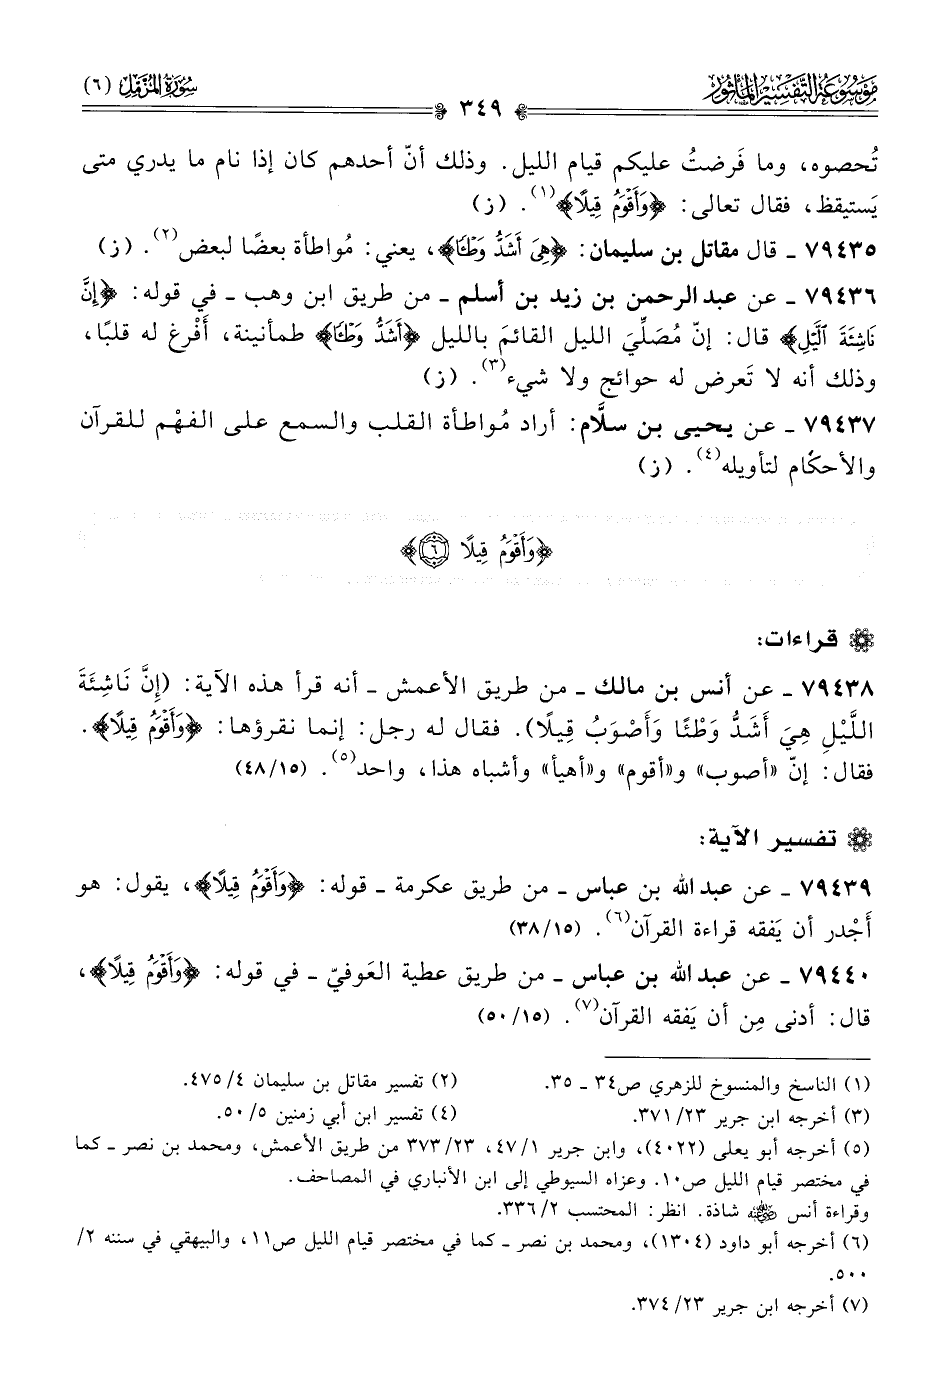 مَوْسُوعَةُ التَّفْسِيرِ المَأْثُورِ
سُورَةُ المُزَّمِّل (٦)
٣٤٩
تُحصوه، وما فَرضتُ عليكم قيام الليل. وذلك أنّ أحدهم كان إذا نام ما يدري متى
يَستيقظ، فقال تعالى: ﴿وَأَقْوَمُ قِيلًا﴾(١). (ز)
٧٩٤٣٥ ـ قال مقاتل بن سليمان: ﴿هِىَ أَشَدُّ وَطْـًٔا﴾، يعني: مُواطأة بعضًا لبعض(٢). (ز)
٧٩٤٣٦ ـ عن عبد الرحمن بن زيد بن أسلم ـ من طريق ابن وهب ـ في قوله: ﴿إِنَّ
نَاشِئَةَ ٱلَّيْلِ﴾ قال: إنّ مُصَلِّيَ الليل القائمَ بالليل ﴿أَشَدُّ وَطْـًٔا﴾ طمأنينة، أَفْرغ له قلبًا،
وذلك أنه لا تَعرض له حوائج ولا شيء(٣). (ز)
٧٩٤٣٧ ـ عن يحيى بن سلَّام: أراد مُواطأة القلب والسمع على الفهْم للقرآن
والأحكْام لتأويله(٤). (ز)
﴿وَأَقْوَمُ قِيلًا ٦﴾
قراءات:
٧٩٤٣٨ ـ عن أنس بن مالك ـ من طريق الأعمش ـ أنه قرأ هذه الآية: (إِنَّ نَاشِئَةَ
اللَّيْلِ هِيَ أَشَدُّ وَطْئًا وَأَصْوَبُ قِيلًا). فقال له رجل: إنما نقرؤها: ﴿وَأَقْوَمُ قِيلًا﴾.
فقال: إنّ «أصوب» و«أقوم» و«أهيأ» وأشباه هذا، واحد(٥). (٤٨/١٥)
تفسير الآية:
٧٩٤٣٩ ـ عن عبد الله بن عباس ـ من طريق عكرمة ـ قوله: ﴿وَأَقْوَمُ قِيلًا﴾، يقول: هو
أَجْدر أن يَفقه قراءة القرآن(٦). (٣٨/١٥)
٧٩٤٤٠ ـ عن عبد الله بن عباس ـ من طريق عطية العَوفيّ ـ في قوله: ﴿وَأَقْوَمُ قِيلًا﴾،
قال: أدنى مِن أن يَفقه القرآن(٧). (٥٠/١٥)
(١) الناسخ والمنسوخ للزهري ص٣٤ ـ ٣٥. (٢) تفسير مقاتل بن سليمان ٤/ ٤٧٥.
(٣) أخرجه ابن جرير ٢٣/ ٣٧١. (٤) تفسير ابن أبي زمنين ٥/ ٥٠.
(٥) أخرجه أبو يعلى (٤٠٢٢)، وابن جرير ١/ ٤٧، ٢٣/ ٣٧٣ من طريق الأعمش، ومحمد بن نصر ـ كما
في مختصر قيام الليل ص١٠. وعزاه السيوطي إلى ابن الأنباري في المصاحف.
وقراءة أنس رضي الله عنه شاذة. انظر: المحتسب ٢/ ٣٣٦.
(٦) أخرجه أبو داود (١٣٠٤)، ومحمد بن نصر ـ كما في مختصر قيام الليل ص١١، والبيهقي في سننه ٢/
٥٠٠.
(٧) أخرجه ابن جرير ٢٣/ ٣٧٤.